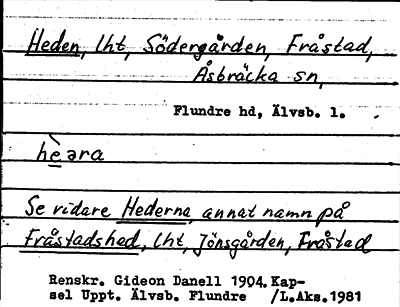 Heden, lht, Södergården, Fråstad,
Åsbräcka sn,
Flundre hd, Älvsb. l.
hèara
Se vidare Hederna, annat namn på
Fråstadshed, lht, Jönsgården, Fråstad
Renskr. Gideon Danell 1904. Kap-
sel Uppt. Älvsb. Flundre /L.Aks.1981